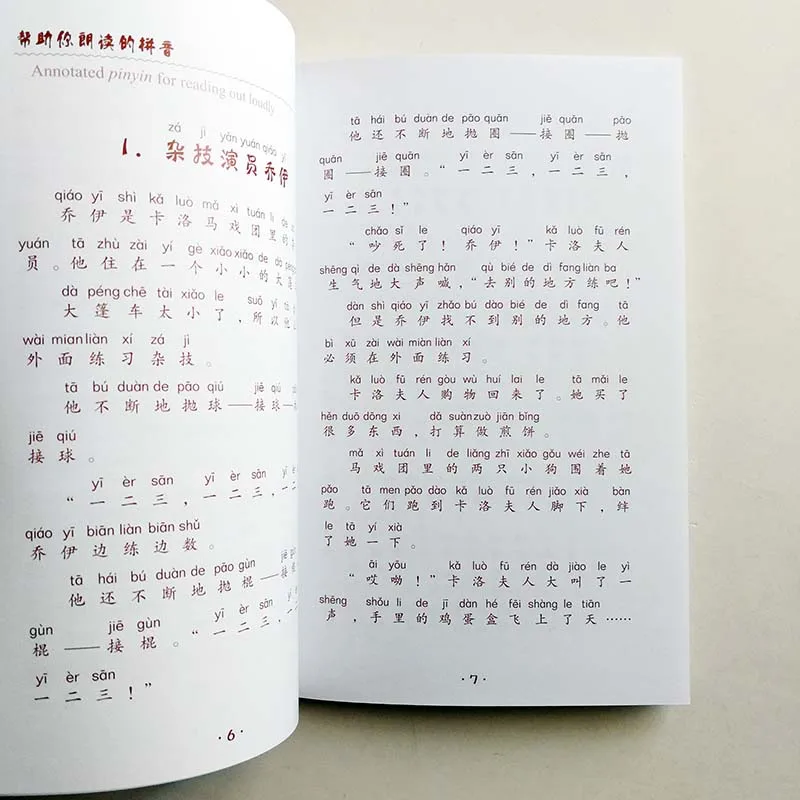 帮助你朗读的拼音
Annotated pinyin for reading out loudly
zá jì yǎn yuán qiáo yī
1. 杂技演员乔伊
qiáo yī shì kǎ luò mǎ xì tuán li de
乔伊是卡洛马戏团里的
yuán tā zhù zài yí gè xiǎo xiǎo de dà péng
员。他住在一个小小的大篷
dà péng chē tài xiǎo le suǒ yǐ tā
大篷车太小了，所以他
wài mian liàn xí zá jì
外面练习杂技。
tā bú duàn de pāo qiú jiē qiú
他不断地抛球——接球—
jiē qiú
接球。
yī èr sān yī èr
“一二三，一二
qiáo yī biān liàn biān shǔ
乔伊边练边数。
tā hái bú duàn de pāo gùn jiē
他还不断地抛棍——接
gùn jiē gùn yī èr sān
棍——接棍。“一二三，
yī èr sān
一二三！”
·6·
tā hái bú duàn de pāo quān jiē quān pāo
他还不断地抛圈——接圈——抛
quān jiē quān yī èr sān yī èr sān
圈——接圈。“一二三，一二三，
yī èr sān
一二三！”
chǎo sǐ le qiáo yī kǎ luò fū rén
“吵死了！乔伊！”卡洛夫人
shēng qì de dà shēng hǎn qù bié de dì fang liàn ba
生气地大声喊，“去别的地方练吧！”
dàn shì qiáo yī zhǎo bú dào bié de dì fang tā
但是乔伊找不到别的地方。他
bì xū zài wài mian liàn xí
必须在外面练习。
kǎ luò fū rén gòu wù huí lai le tā mǎi le
卡洛夫人购物回来了。她买了
hěn duō dōng xi dǎ suàn zuò jiān bǐng
很多东西，打算做煎饼。
mǎ xì tuán li de liǎng zhī xiǎo gǒu wéi zhe tā
马戏团里的两只小狗围着她
pǎo tā men pǎo dào kǎ luò fū rén jiǎo xià bàn
跑。它们跑到卡洛夫人脚下，绊
le tā yí xià
了她一下。
āi yōu kǎ luò fū rén dà jiào le yì
“哎呦！”卡洛夫人大叫了一
shēng shǒu li de jī dàn hé fēi shàng le tiān
声，手里的鸡蛋盒飞上了天……
·7·